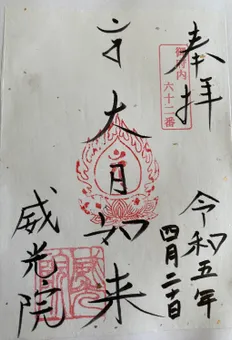 奉拝
御府内
六十二番
令和五年
四月二十日
大日如来
威光院